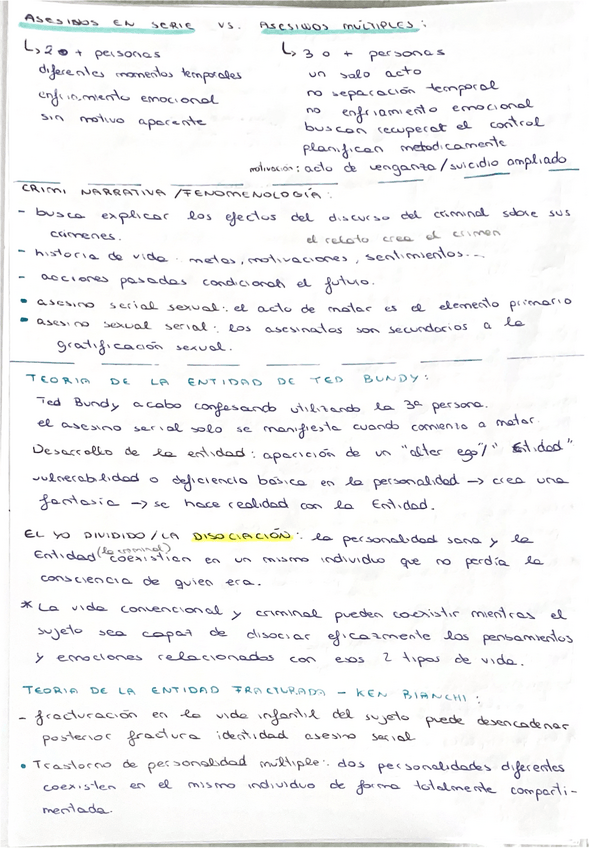 ASESINOS EN SERIE VS. ASESINOS MÚLTIPLES:
↳ 2 o + personas
diferentes momentos temporales
enfriamiento emocional
sin motivo aparente
↳ 3 o + personas
un solo acto
no separación temporal
no enfriamiento emocional
buscan recuperar el control
planifican metodicamente
motivación: acto de venganza/suicidio ampliado
CRIMI NARRATIVA/FENOMENOLOGÍA:
- busca explicar los efectos del discurso del criminal sobre sus
crímenes. el relato crea el crimen
- historia de vida: metas, motivaciones, sentimientos...
- acciones pasadas condicionan el futuro.
• asesino serial sexual: el acto de matar es el elemento primario
• asesino sexual serial: los asesinatos son secundarios a la
gratificación sexual.
TEORIA DE LA ENTIDAD DE TED BUNDY:
Ted Bundy acabo confesando utilizando la 3ª persona.
el asesino serial solo se manifiesta cuando comienza a matar.
Desarrollo de la entidad: aparición de un "alter ego"/"Entidad"
vulnerabilidad o deficiencia básica en la personalidad → crea una
fantasia → se hace realidad con la Entidad.
EL YO DIVIDIDO/LA DISOCIACIÓN: la personalidad sana y la
Entidad (la criminal) coexistian en un mismo individuo que no perdía la
consciencia de quien era.
* La vida convencional y criminal pueden coexistir mientras el
sujeto sea capaz de disociar eficazmente los pensamientos
y emociones relacionados con esos 2 tipos de vida.
TEORIA DE LA ENTIDAD FRACTURADA - KEN BIANCHI:
- fracturación en la vida infantil del sujeto puede desencadenar
posterior fractura identidad asesino serial
• Trastorno de personalidad múltiple: dos personalidades diferentes
coexisten en el mismo individuo de forma totalmente comparti-
mentada.